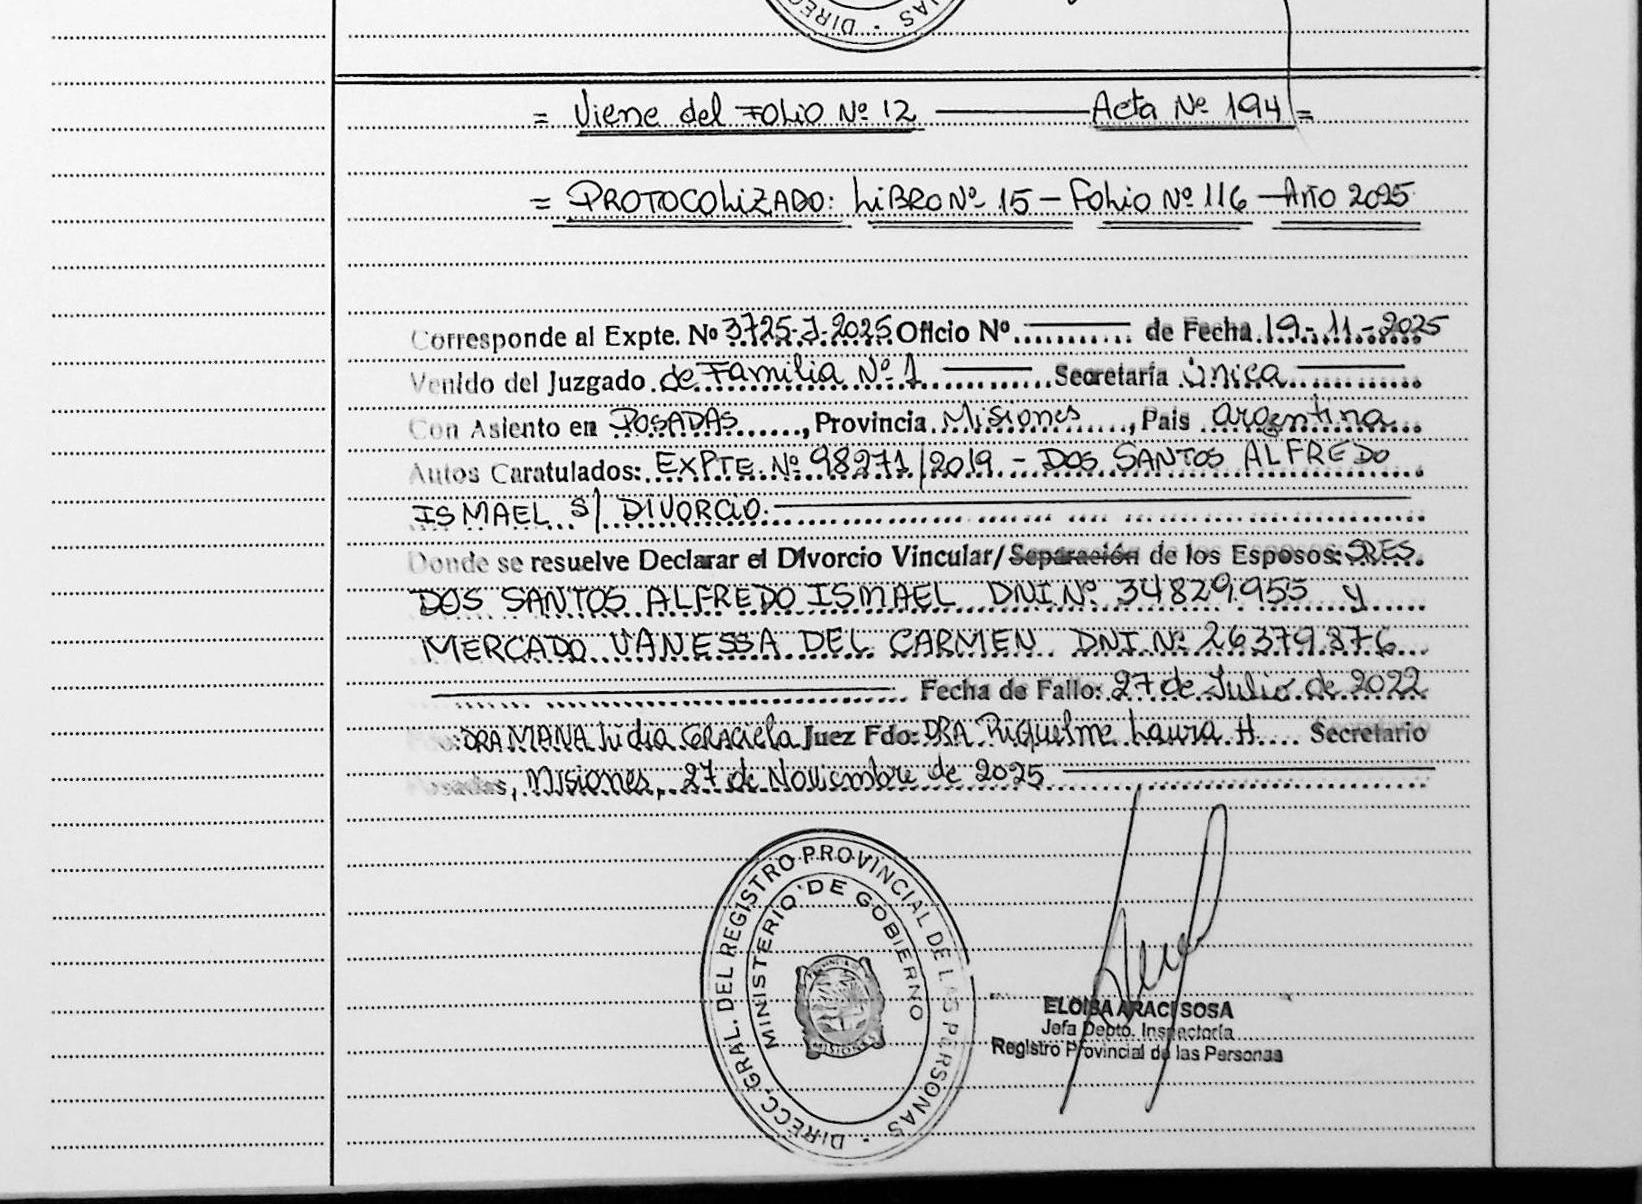 DIREC · NAS
= Viene del FOLIO Nº 12 ——— Acta Nº 194 =
= PROTOCOLIZADO: LIBRO Nº 15 – Folio Nº 116 – Año 2025
Corresponde al Expte. Nº 3725-J-2025 Oficio Nº ——— de Fecha 19-11-2025
Venido del Juzgado de Familia Nº 1 ——— Secretaría Única ———
Con Asiento en POSADAS, Provincia Misiones, País argentina
Autos Caratulados: EXPTE. Nº 98271/2019 – DOS SANTOS ALFREDO
ISMAEL S/ DIVORCIO. ———
Donde se resuelve Declarar el Divorcio Vincular/Separación de los Esposos: SRES.
DOS SANTOS ALFREDO ISMAEL DNI Nº 34829.955 y
MERCADO VANESSA DEL CARMEN DNI Nº 26379.876
——— Fecha de Fallo: 27 de Julio de 2022
DRA MANA Lidia GRAciela Juez Fdo: DRA Riquelme Laura H. Secretario
Posadas, Misiones, 27 de Noviembre de 2025 ———
DIRECC. GRAL. DEL REGISTRO PROVINCIAL DE LAS PERSONAS
MINISTERIO DE GOBIERNO
PROVINCIA DE
MISIONES
ELOISA ARACI SOSA
Jefa Depto. Inspectoría
Registro Provincial de las Personas